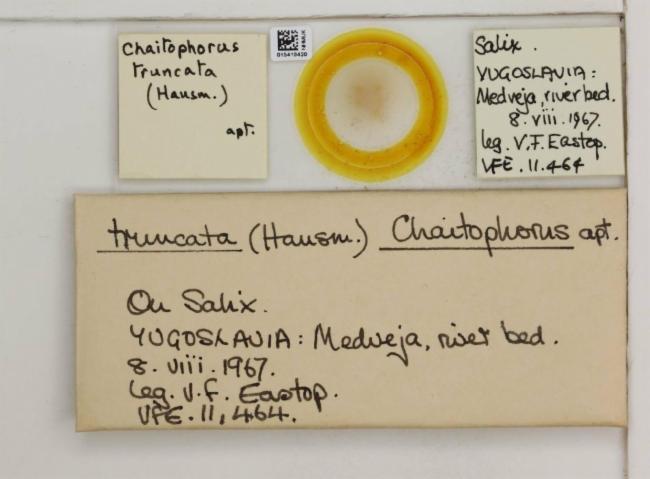 Chaitophorus
truncata
(Hausm.)
apt.
NHMUK
Salix.
YUGOSLAVIA:
Medveja, river bed.
8. viii. 1967.
leg. V.F. Eastop.
VFE. 11.464
truncata (Hausm.) Chaitophorus apt.
On Salix.
YUGOSLAVIA: Medveja, river bed.
8. viii. 1967.
Leg. V.F. Eastop.
VFE. 11,464.